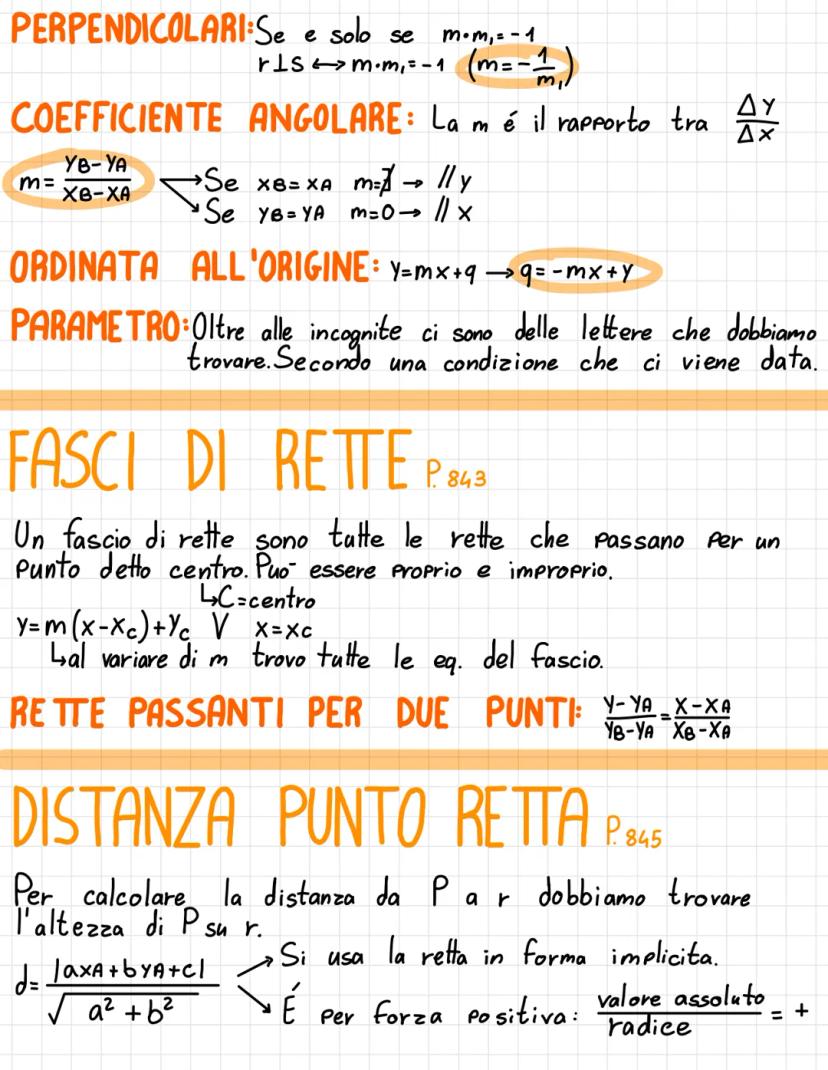 PERPENDICOLARI: Se e solo se m•m₁=-1
r⊥s ⟷ m•m₁=-1 (m=-1/m₁)
COEFFICIENTE ANGOLARE: La m é il rapporto tra ΔY/ΔX
m= YB-YA/XB-XA → Se XB=XA m=∄ → // y
→ Se YB=YA m=0 → // x
ORDINATA ALL'ORIGINE: Y=mx+q → q=-mx+y
PARAMETRO: Oltre alle incognite ci sono delle lettere che dobbiamo
trovare. Secondo una condizione che ci viene data.
FASCI DI RETTE P. 843
Un fascio di rette sono tutte le rette che passano per un
punto detto centro. Puo- essere proprio e improprio.
↳C=centro
y=m(x-xc)+Yc V x=xc
↳al variare di m trovo tutte le eq. del fascio.
RETTE PASSANTI PER DUE PUNTI: Y-YA/YB-YA = X-XA/XB-XA
DISTANZA PUNTO RETTA P. 845
Per calcolare la distanza da P a r dobbiamo trovare
l'altezza di P su r.
d= |axA+byA+c|/√a²+b² → Si usa la retta in forma implicita.
→ É per forza positiva: valore assoluto/radice = +